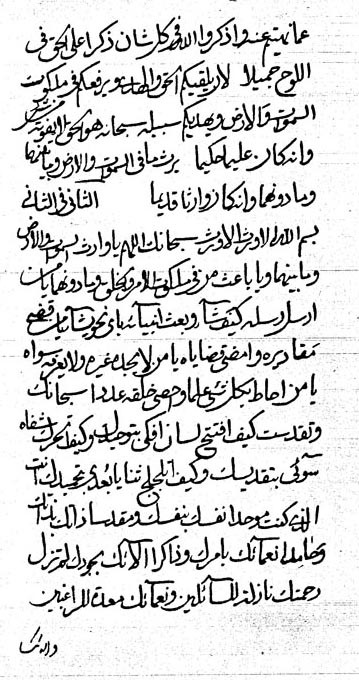 عما نهيتم عنه واذكروا الله في كل شان ذكرا على الحق في
اللوح جميلا لان يلقيكم الحق والهدى ويرفعكم في ملكوت
السموات والارض ويهديكم سبيله سبحانه هو الحق لا يفوته من شيء
وانه كان عليما حكيما يرث ما في السموات والارض وما بينهما
وما دونهما وانه كان وارثا قديما الثاني في الثاني
بسم الله الاورث الاورث سبحانك اللهم يا وارث السموات والارض
وما بينهما ويا باعث من في ملكوت الامر والخلق وما دونهما بان
ارسل رسله كيف شاء وبعث انبيائه باي نحو شاء يا من قضى
مقاديره وامضى قضاياه يا من لا يجده غيره ولا يعرفه سواه
يا من احاط بكل شيء علما واحصى خلقه عددا سبحانك
وتقدست كيف افتتح لسان افكي بتوحيدك وكيف تحرك شفاه
سوئي بتقديسك وكيف ثنايا بعدي تمجيدك انت
الذي كنت موحدا نفسك بنفسك ومقدسا ذاتك بذاتك
وحامدا نعمائك بامرك وذاكرا الائك بجودك لم تزل
رحمتك نازلة للسائلين ونعمائك معدة للراغبين